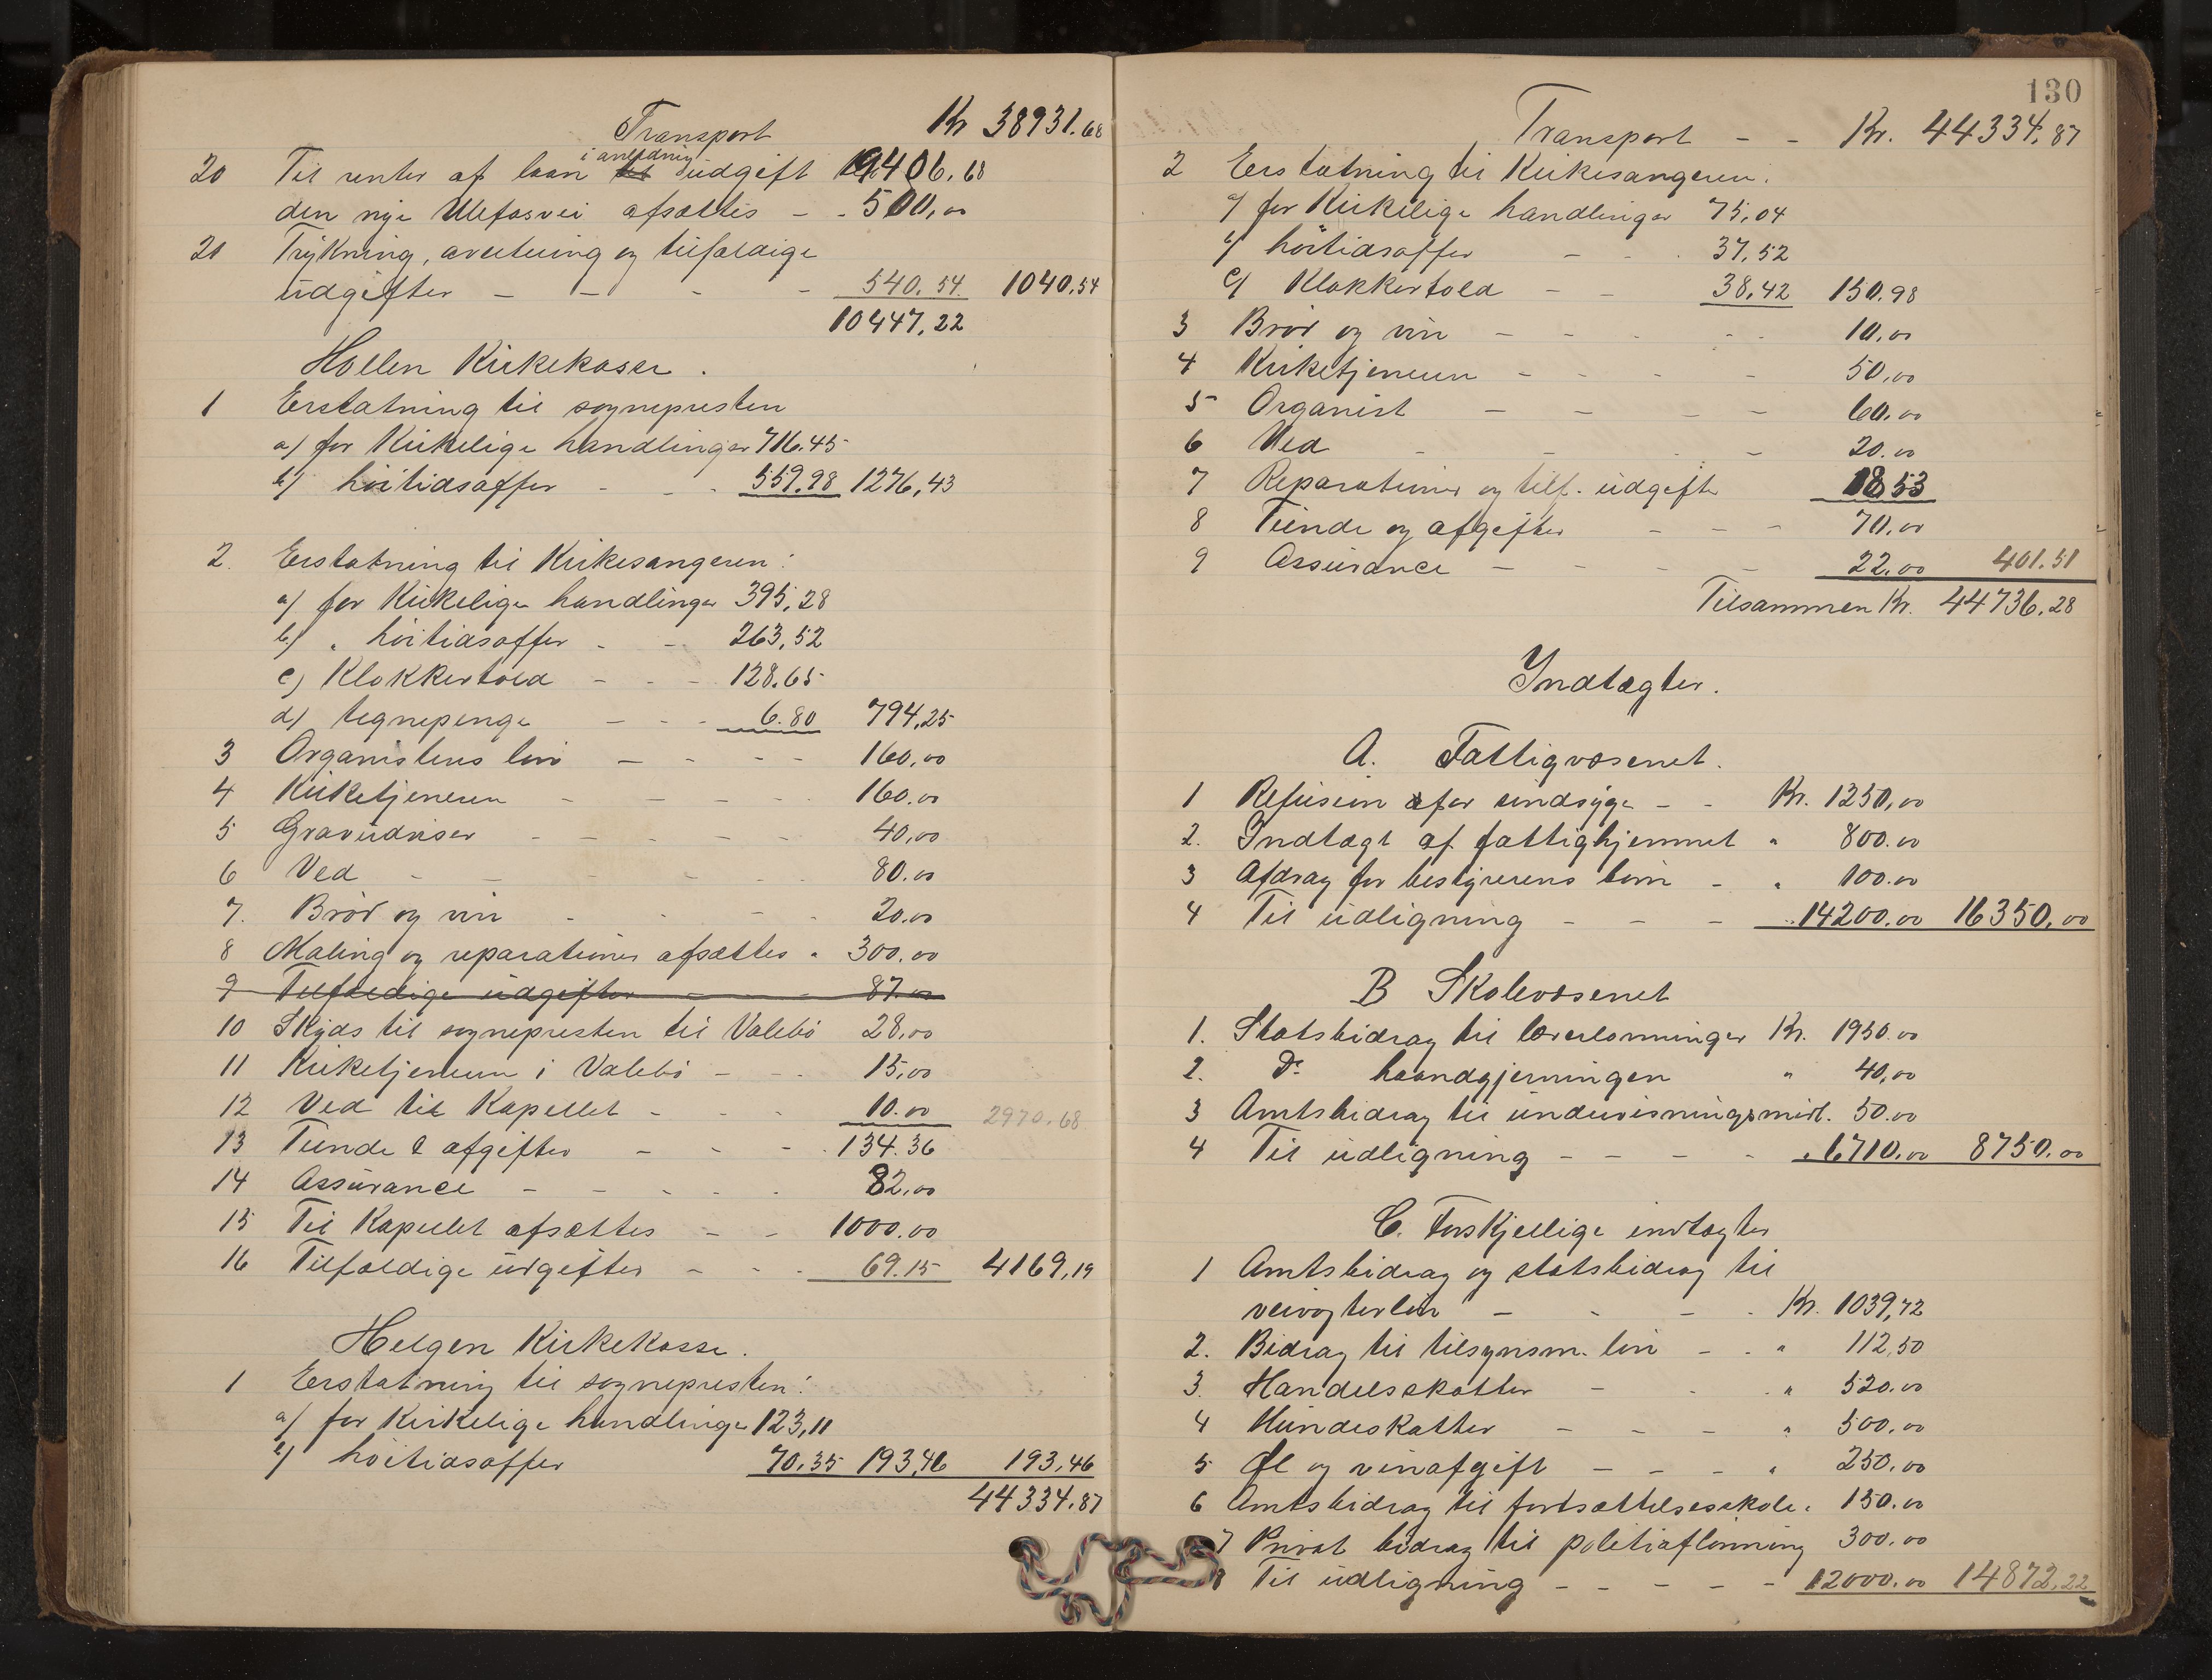 Transport Kr 38931.68
i anledning
20 Til renter af laan til udgift 9406.68
den nye Ulefosvei afsættes - - 500,00
21 Trykning, avertering og tilfældige
udgifter - - - - 540.54 1040.54
10447,22
Hollen Kirkekasse.
1 Erstatning til sognepresten
a) for Kirkelige handlinger 716.45
b) höitidsoffer - - - 559.98 1276,43
2. Erstatning til Kirkesangeren:
a) for Kirkelige handlinger 395,28
b) " höitidsoffer - - 263,52
c) Klokkertold - - - 128.65
d) tegnepenge - - - 6.80 794,25
3 Organistens lön - - - - 160,00
4 Kirketjeneren - - - - 160.00
5 Gravudviser - - - - - 40,00
6 Ved - - - - - - 80.00
7. Bröd og vin - - - - 20.00
8 Maling og reparationer afsættes " 300.00
9 Tilfældige udgifter - - - 87.00
10 Skyds til sognepresten til Valebö 28,00
11 Kirketjeneren i Valebö - - - 15,00
12 Ved til Kapellet - - - 10.00 2970.68
13 Tiende & afgifter - - - 134.36
14 Assurance - - - - - 82,00
15 Til Kapellet afsættes - - 1000.00
16 Tilfældige udgifter - - - 69.15 4169,19
Helgen Kirkekasse.
1 Erstatning til sognepresten:
a) for Kirkelige handlinge 123,11
b) höitidsoffer 70.35 193,46 193,46
44334.87
130
Transport - - Kr. 44334,87
2 Erstatning til Kirkesangeren:
a) for Kirkelige handlinger 75,04
b) höitidsoffer - - - 37,52
c) Klokkertold - - 38,42 150,98
3 Bröd og vin - - - - - 10,00
4 Kirketjeneren - - - - 50,00
5 Organist - - - - 60,00
6 Ved - - - - 20.00
7 Reparationer og tilf. udgifter 18,53
8 Tiende og afgifter - - - 70,00
9 Assurance - - - - 22.00 401.51
Tilsammen Kr. 44736.28
Indtægter.
A. Fattigvæsenet.
1 Refusion for sindsyge - - Kr. 1250,00
2. Indtægt af fattighjemmet " 800.00
3 Afdrag for bestyrerens lön - " 100.00
4 Til udligning - - - " 14200.00 16350,00
B Skolevæsenet
1. Statsbidrag til lærerlønninger Kr. 1950.00
2. Do haandgjerningen " 40,00
3 Amtsbidrag til undervisningsmidl. 50.00
4 Til udligning - - - - " 6710.00 8750.00
C. Forskjellige indtægter
1 Amtsbidrag og statsbidrag til
veivogterlön - - - - Kr. 1039,72
2. Bidrag til tilsynsm. lön - - " 112,50
3. Handelsskatter - - " 520.00
4 Hundeskatter - - - " 500.00
5 Øl og vinafgift - - - " 250.00
6 Amtsbidrag til fortsættelsesskole " 150.00
7 Privat bidrag til politiaflønning 300.00
8 Til udligning - - - - - 12000.00 14872.22